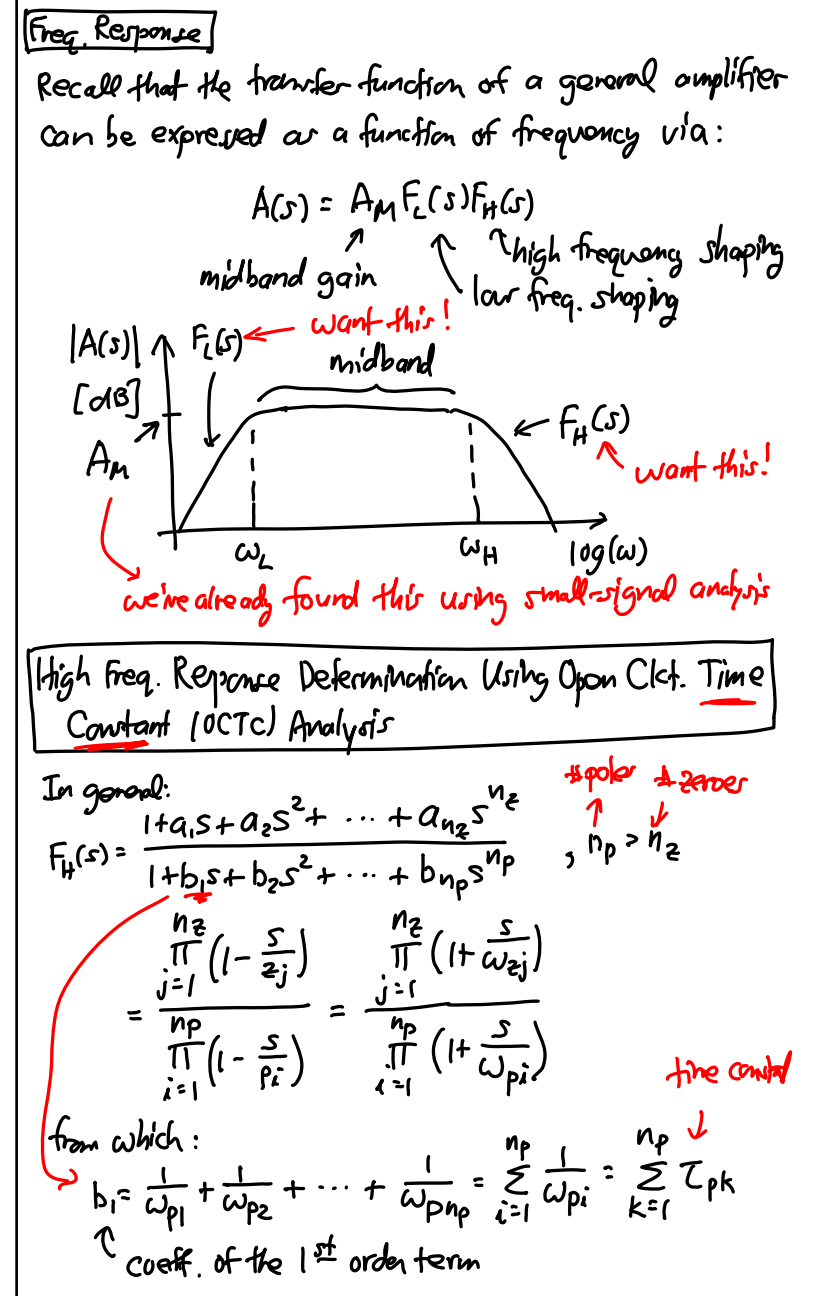 Freq. Response
Recall that the transfer function of a general amplifier
can be expressed as a function of frequency via:
A(s) = A_M F_L(s) F_H(s)
midband gain
high frequency shaping
low freq. shaping
|A(s)|
[dB]
F_L(s)
want this!
midband
A_M
F_H(s)
want this!
ω_L
ω_H
log(ω)
we've already found this using small-signal analysis
High Freq. Response Determination Using Open Ckt. Time
Constant (OCTC) Analysis
In general:
#poles #zeroes
F_H(s) = (1+a_1s+a_2s^2+ ··· +a_{n_z}s^{n_z}) / (1+b_1s+b_2s^2+ ··· +b_{n_p}s^{n_p}) , n_p > n_z
= ∏_{j=1}^{n_z} (1 - s/z_j) / ∏_{i=1}^{n_p} (1 - s/p_i) = ∏_{j=1}^{n_z} (1 + s/ω_{zj}) / ∏_{i=1}^{n_p} (1 + s/ω_{pi})
time constant
from which:
b_1 = 1/ω_{p1} + 1/ω_{p2} + ··· + 1/ω_{pn_p} = ∑_{i=1}^{n_p} 1/ω_{pi} = ∑_{k=1}^{n_p} τ_{pk}
coeff. of the 1st order term